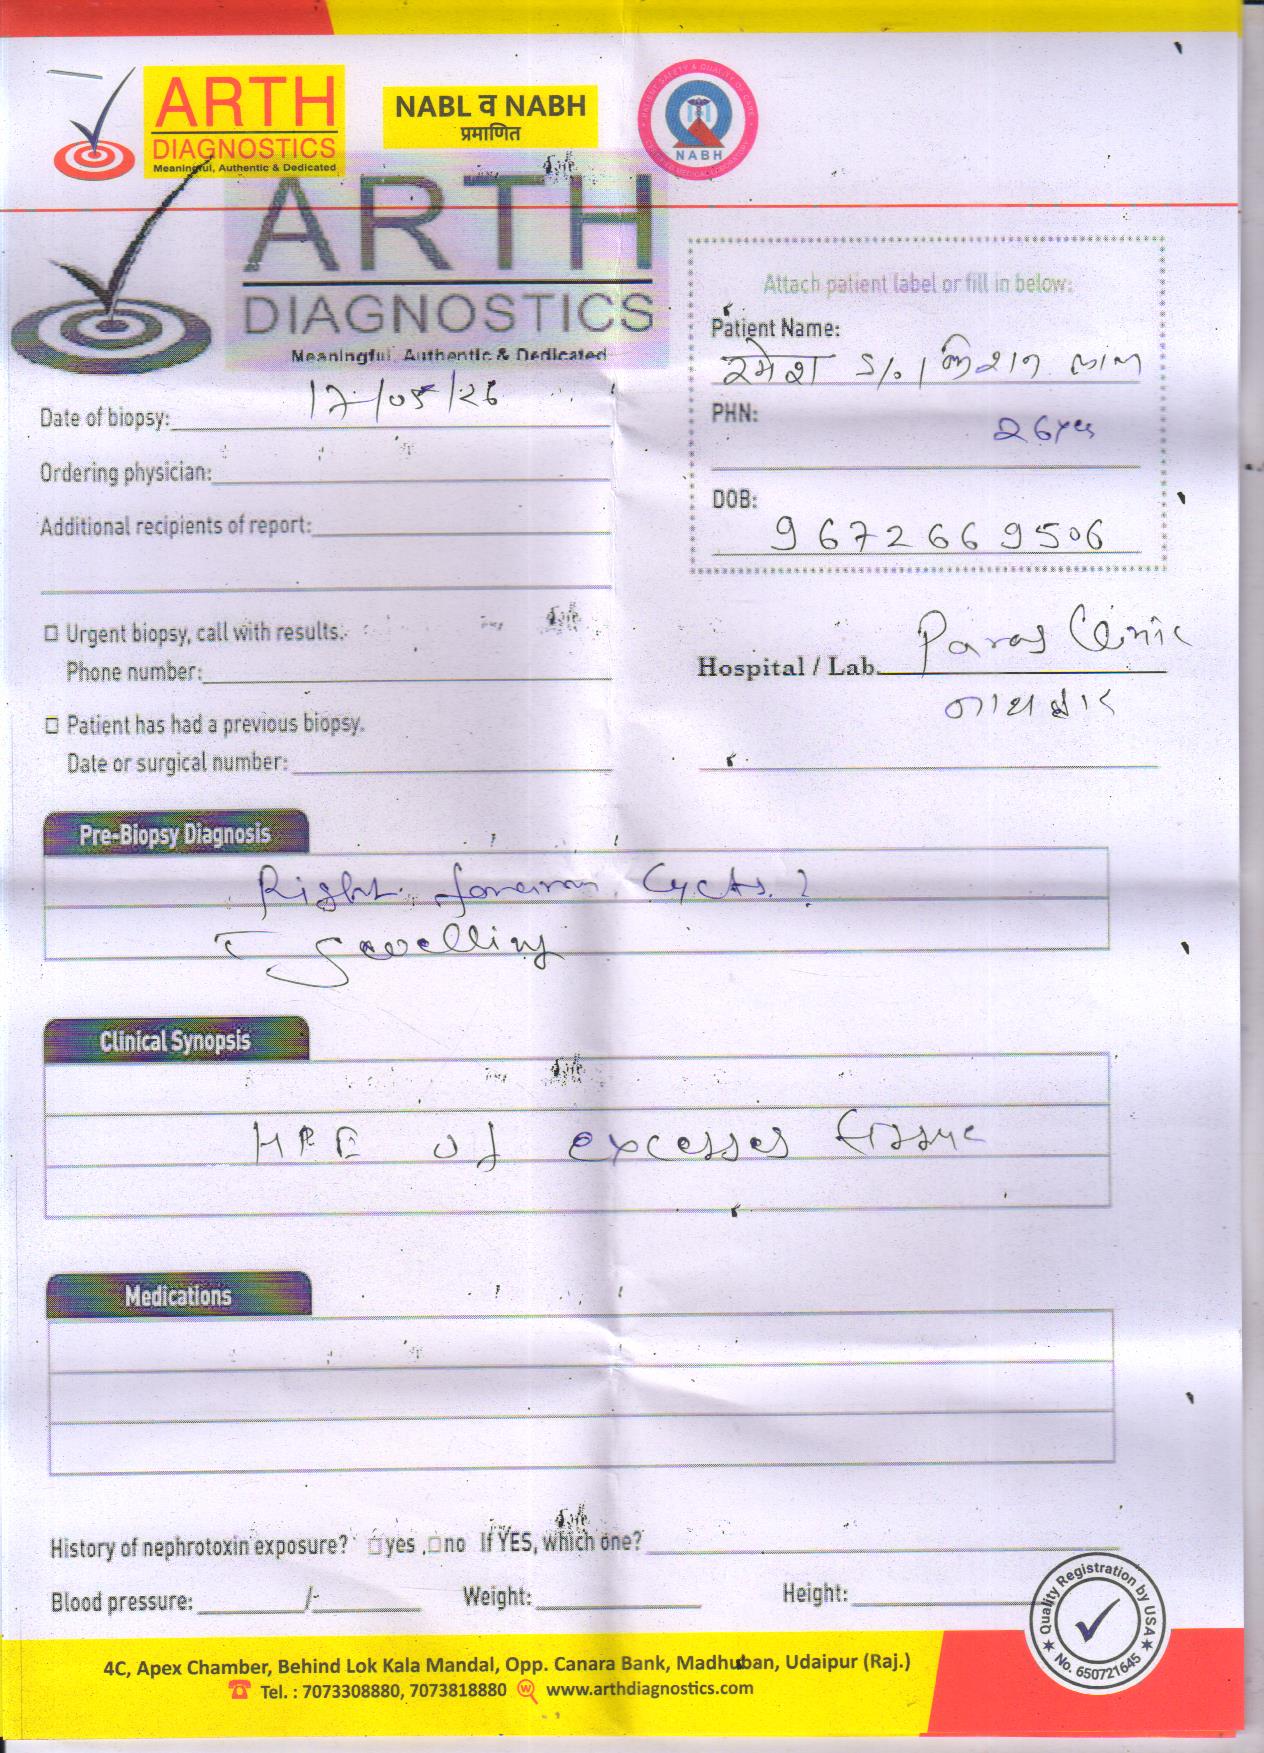 ARTH
DIAGNOSTICS
Meaningful, Authentic & Dedicated
NABL व NABH
प्रमाणित
NABH
ARTH
DIAGNOSTICS
Meaningful, Authentic & Dedicated
Attach patient label or fill in below:
Patient Name:
रमेश S/o किशन लाल
PHN:
26 yrs
DOB:
9672669506
Date of biopsy: 17/05/26
Ordering physician:
Additional recipients of report:
Urgent biopsy, call with results.
Phone number:
Patient has had a previous biopsy.
Date or surgical number:
Hospital / Lab. Paras Clinic
Pre-Biopsy Diagnosis
Right Cycts ?
Swelling
Clinical Synopsis
HPE of excesses tissue
Medications
History of nephrotoxin exposure? yes no If YES, which one?
Blood pressure: / Weight: Height:
Quality Registration by USA
No. 650721645
4C, Apex Chamber, Behind Lok Kala Mandal, Opp. Canara Bank, Madhuban, Udaipur (Raj.)
Tel. : 7073308880, 7073818880 www.arthdiagnostics.com